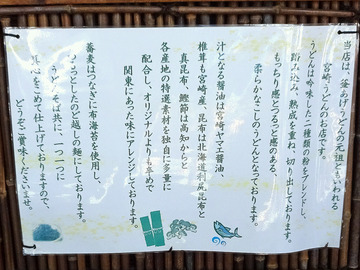 当店は、釜あげうどんの元祖ともいわれる
宮崎うどんのお店です。
うどんは吟味した二種類の粉をブレンドし、
踏み込み、熟成を重ね、切り出しております。
もっちり感とつるっと感のある、
柔らかなこしのうどんとなっております。
汁となる醤油は宮崎ヤマエ醤油、
椎茸も宮崎産、昆布は北海道利尻昆布と
真昆布、鰹節は高知からと
各産地の特選素材を独自に多量に
配合し、オリジナルよりも辛めで
関東にあった味にアレンジしております。
蕎麦はつなぎに布海苔を使用し、
としたのど越しの麺にしております。
うどん、そば共に、一つ一つに
真心をこめて仕上げておりますので、
どうぞご賞味くださいませ。